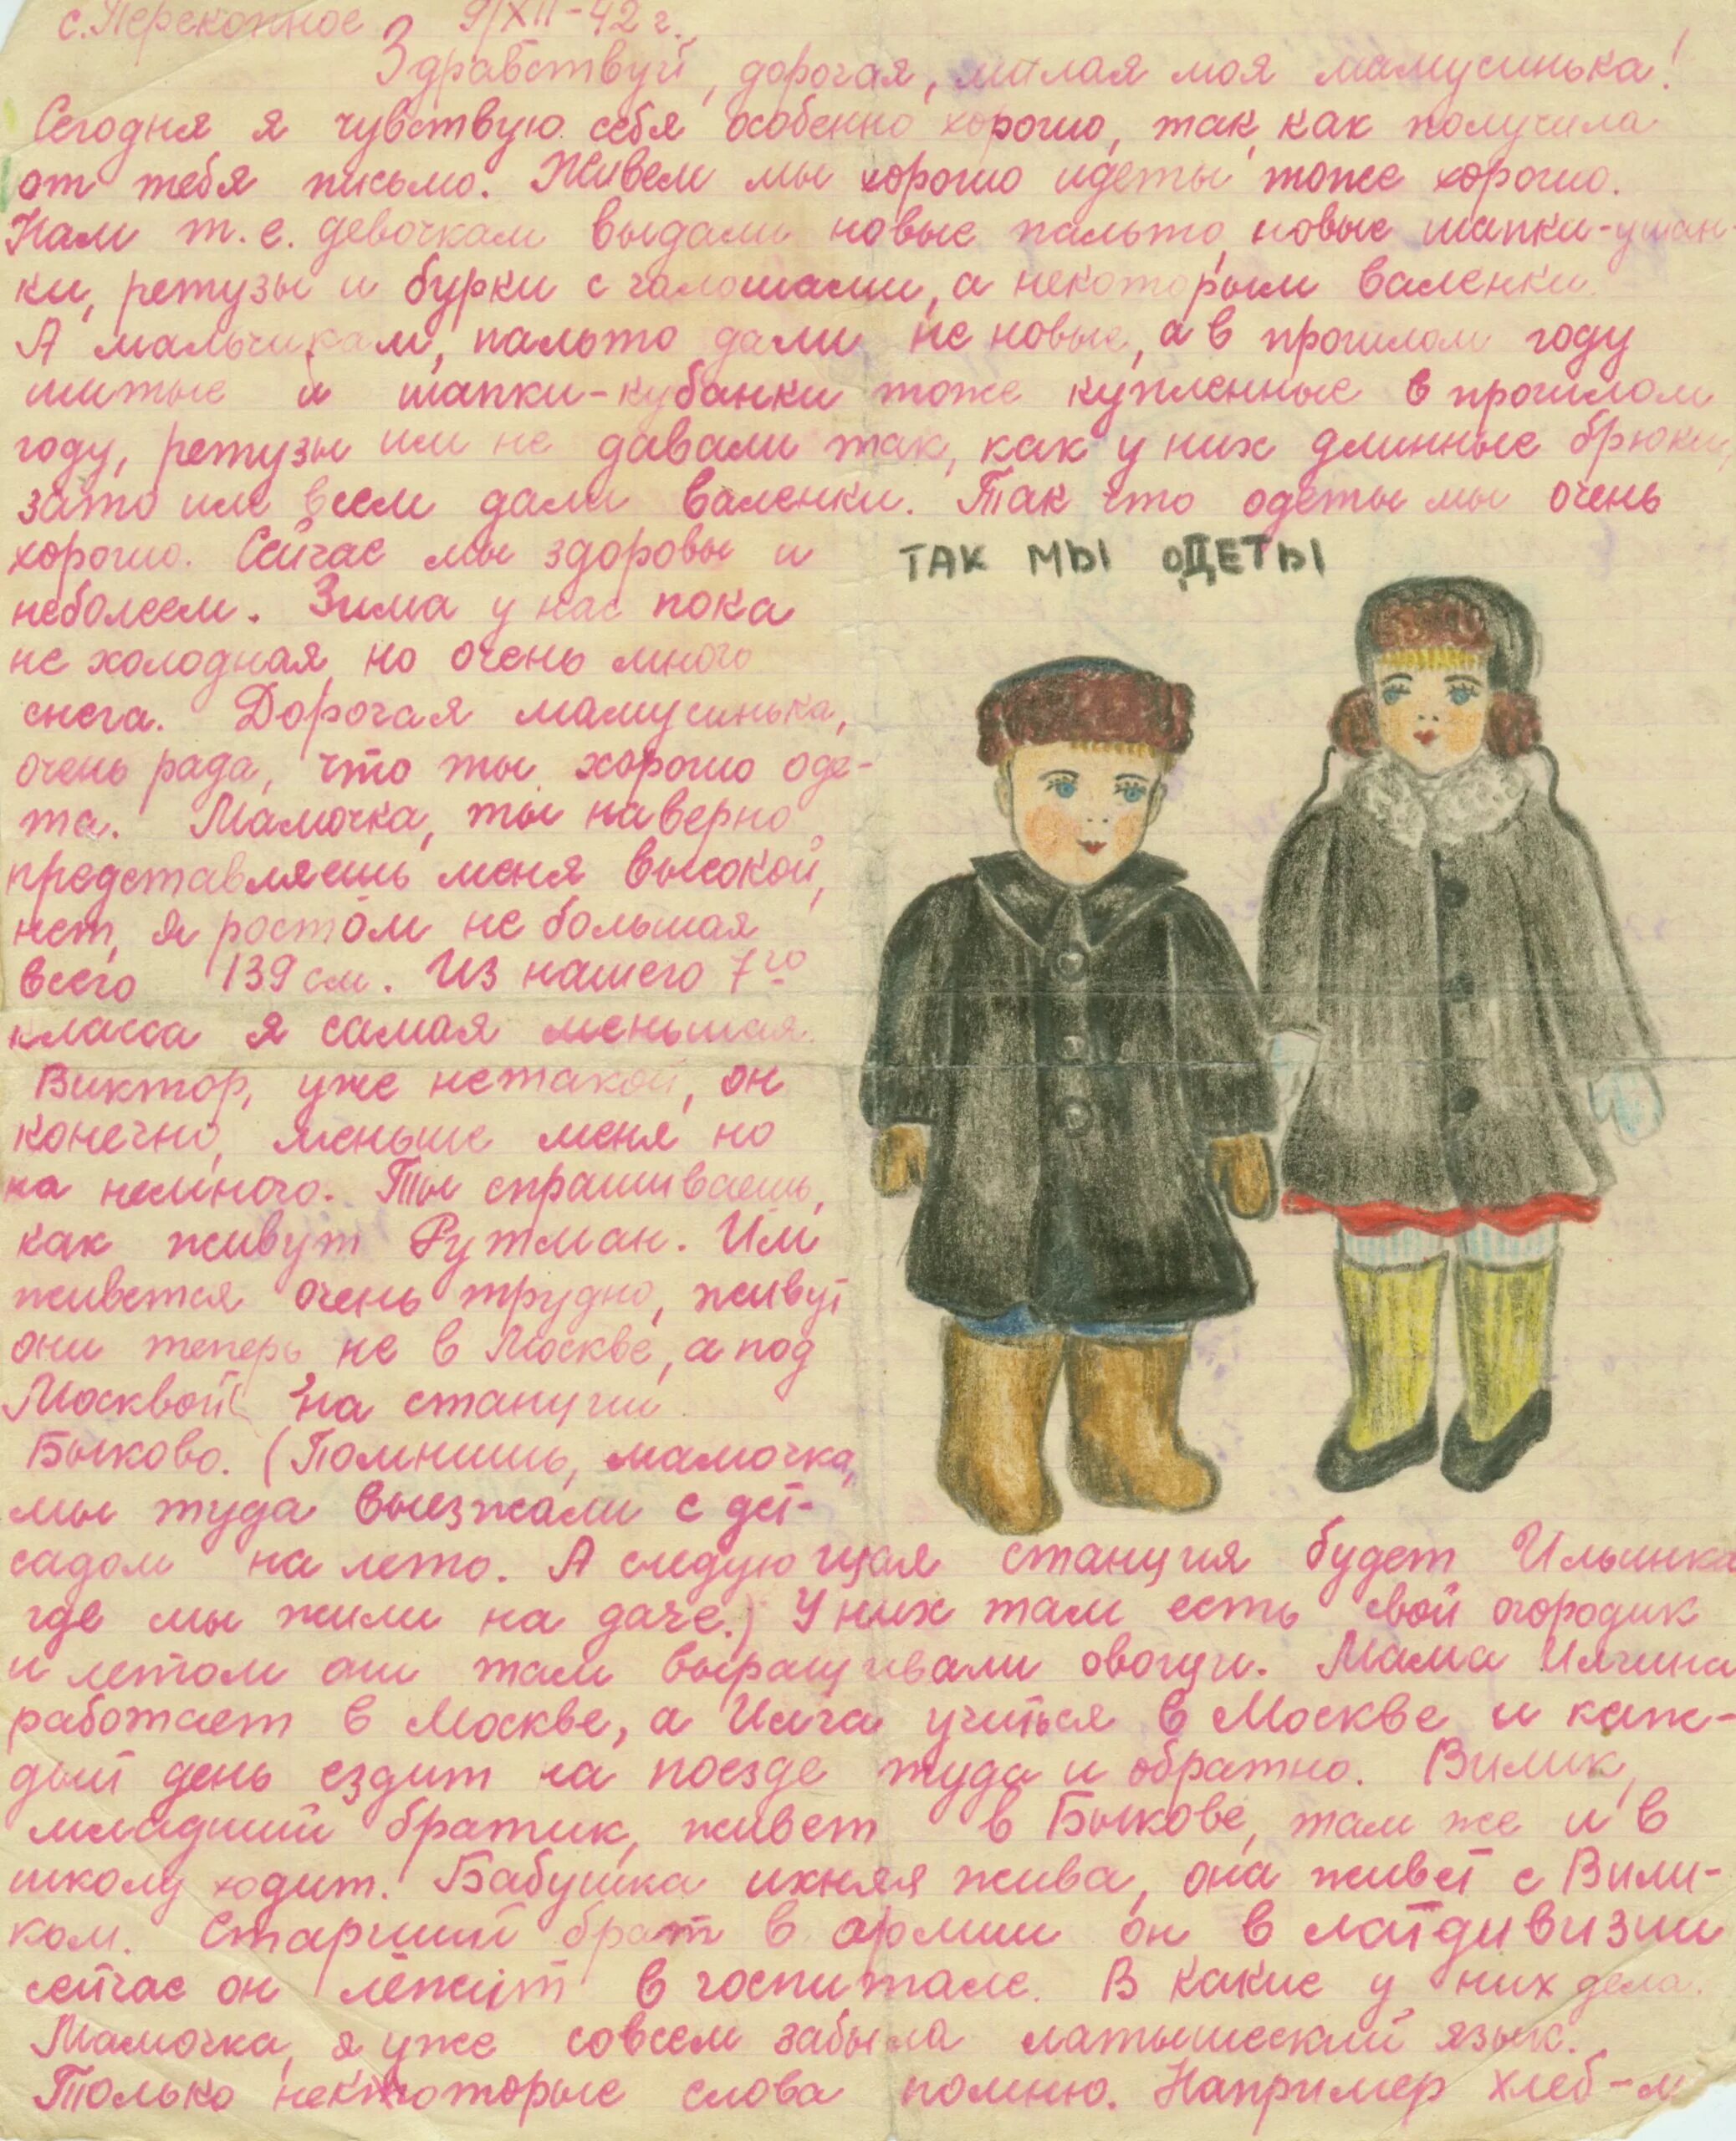 с. Перекопное 9/XII-42 г.
Здравствуй, дорогая, милая моя мамусинька!
Сегодня я чувствую себя особенно хорошо, так, как получила
от тебя письмо. Живем мы хорошо одеты тоже хорошо.
Нам т.е. девочкам выдали новые пальто, новые шапки-ушан-
ки, ретузы и бурки с галошами, а некоторым валенки.
А мальчикам, пальто дали не новые, а в прошлом году
шитые и шапки-кубанки тоже купленные в прошлом
году, ретузы им не давали так, как у них длинные брюки,
зато им всем дали валенки. Так что одеты мы очень
хорошо. Сейчас мы здоровы и
неболеем. Зима у нас пока
не холодная, но очень много
снега. Дорогая мамусинька,
очень рада, что ты хорошо оде-
та. Мамочка, ты наверно
представляешь меня высокой,
нет, я ростом не большая
всего 139 см. Из нашего 7го
класса я самая меньшая.
Виктор, уже нетакой, он
конечно, меньше меня но
на немного. Ты спрашиваешь,
как живут Рутман. Им
живется очень трудно, живут
они теперь не в Москве, а под
Москвой на станции
Быково. (Помнишь, мамочка,
мы туда выезжали с дет-
садом на лето. А следующая станция будет Ильинка
где мы жили на даче.) У них там есть свой огородик
и летом они там выращивали овощи. Мама Имчина
работает в Москве, а Имча учиться в Москве и каж-
дый день ездит на поезде туда и обратно. Вилик,
младший братик, живет в Быкове, там же и в
школу ходит. Бабушка ихняя жива, она живет с Вили-
ком. Старший брат в армии он в латдивизии
сейчас он лежит в госпитале. В какие у них дела.
Мамочка, я уже совсем забыла латышский язык.
Только некоторые слова помню. Например хлеб-м
ТАК МЫ ОДЕТЫ